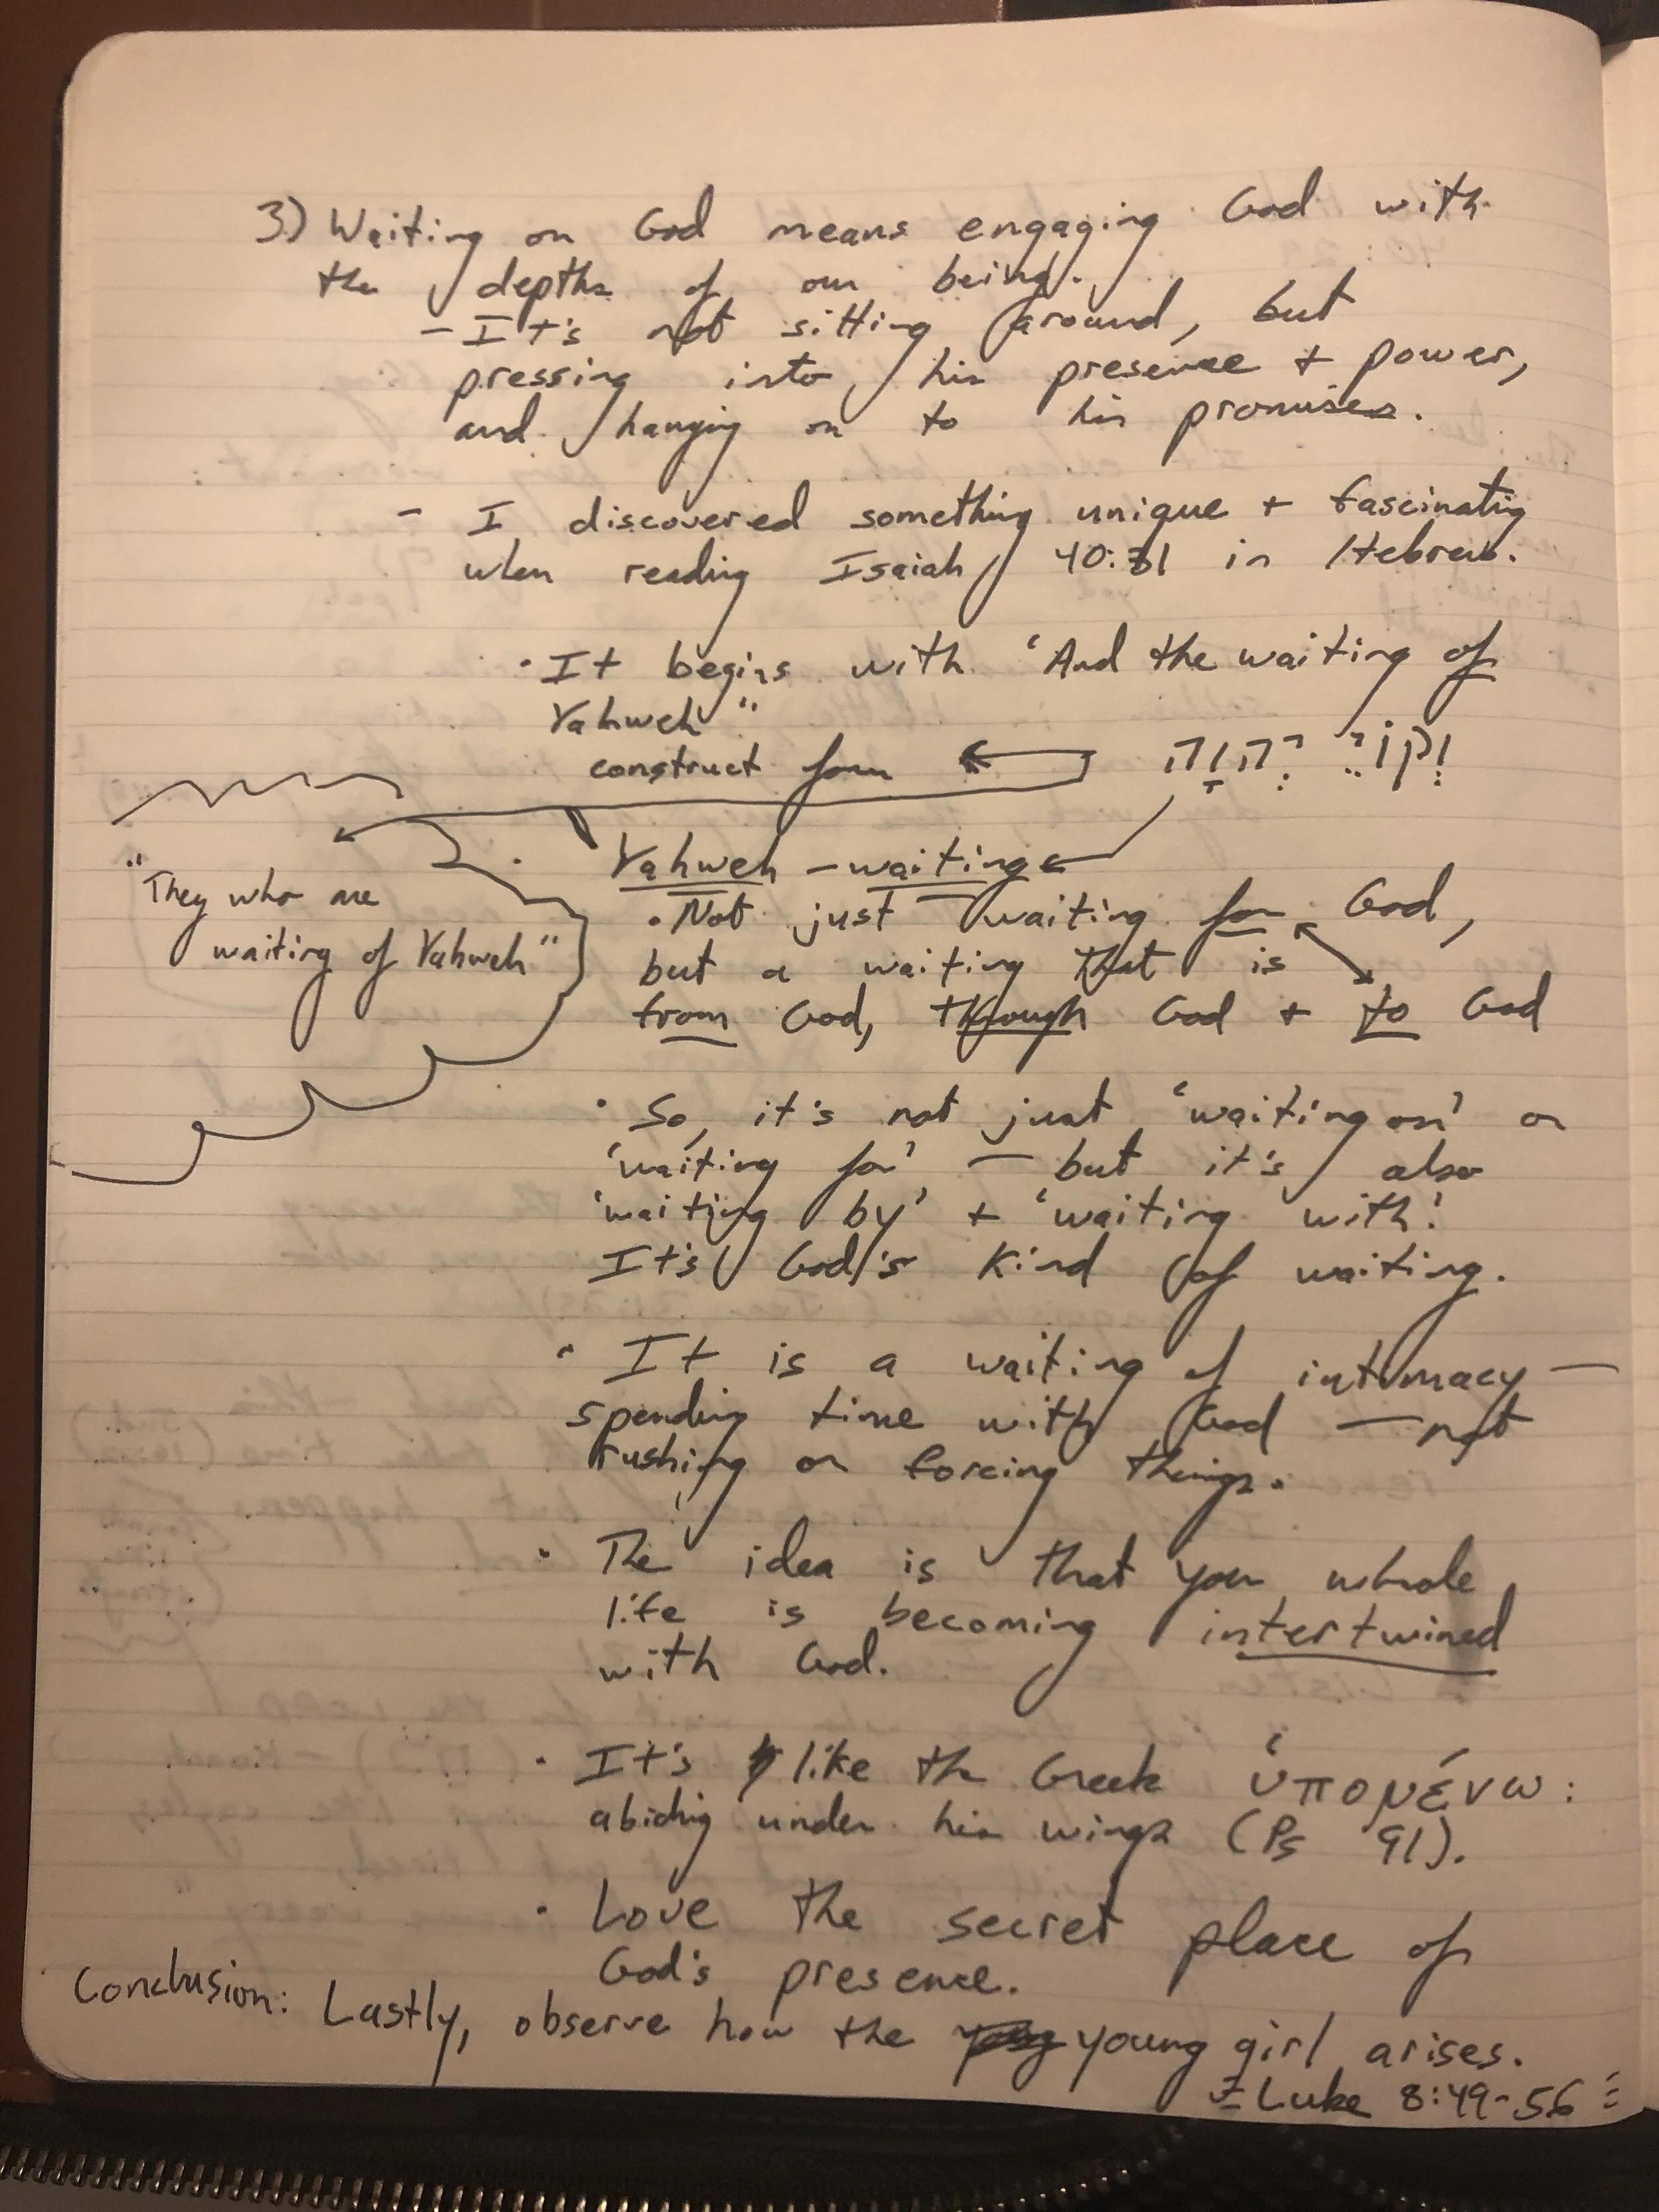 3.) Waiting on God means engaging God with
the depths of our being.
- It's not sitting around, but
pressing into his presence + power,
and hanging on to his promises.
- I discovered something unique + fascinating
when reading Isaiah 40:31 in Hebrew.
• It begins with 'And the waiting of
Yahweh"
construct form וְקוֹיֵ יְהוָה
"They who are
waiting of Yahweh"
• Yahweh - waiting
• Not just waiting for God,
but a waiting that is
from God, through God + to God
• So, it's not just 'waiting on' or
'waiting for' — but it's also
'waiting by' + 'waiting with'.
It's God's kind of waiting.
• It is a waiting of intimacy —
spending time with God — not
rushing or forcing things.
• The idea is that your whole
life is becoming intertwined
with God.
• It's like the Greek ὑπομένω:
abiding under his wings (Ps 91).
• Love the secret place of
God's presence.
Conclusion: Lastly, observe how the young girl arises.
Luke 8:49-56